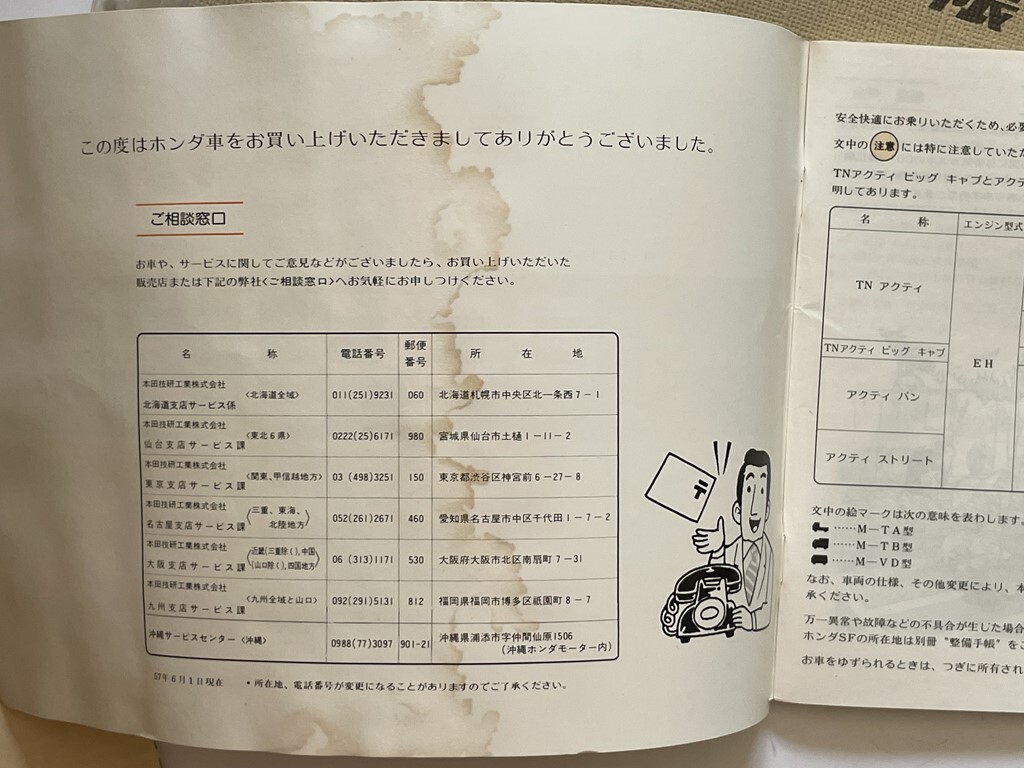 この度はホンダ車をお買い上げいただきましてありがとうございました。
ご相談窓口
お車や、サービスに関してご意見などがございましたら、お買い上げいただいた
販売店または下記の弊社<ご相談窓口>へお気軽にお申しつけください。
名称 電話番号 郵便番号 所在地
本田技研工業株式会社
北海道支店サービス係 <北海道全域> 011(251)9231 060 北海道札幌市中央区北一条西7-1
本田技研工業株式会社
仙台支店サービス課 <東北6県> 0222(25)6171 980 宮城県仙台市土樋1-11-2
本田技研工業株式会社
東京支店サービス課 <関東、甲信越地方> 03(498)3251 150 東京都渋谷区神宮前6-27-8
本田技研工業株式会社
名古屋支店サービス課 <三重、東海、北陸地方> 052(261)2671 460 愛知県名古屋市中区千代田1-7-2
本田技研工業株式会社
大阪支店サービス課 <近畿(三重除く)、中国(山口除く)、四国地方> 06(313)1171 530 大阪府大阪市北区南扇町7-31
本田技研工業株式会社
九州支店サービス課 <九州全域と山口> 092(291)5131 812 福岡県福岡市博多区祇園町8-7
沖縄サービスセンター<沖縄> 0988(77)3097 901-21 沖縄県浦添市字仲間仙原1506
(沖縄ホンダモーター内)
57年6月1日現在 •所在地、電話番号が変更になることがありますのでご了承ください。
〒
安全快適にお乗りいただくため、必
文中の注意には特に注意していただ
TNアクティ ビッグ キャブとアクテ
明してあります。
名称 エンジン型式
TN アクティ
TNアクティ ビッグ キャブ
EH
アクティ バン
アクティ ストリート
文中の絵マークは次の意味を表わします。
……M-TA型
……M-TB型
……M-VD型
なお、車両の仕様、その他変更により、本
承ください。
万一異常や故障などの不具合が生じた場合
ホンダSFの所在地は別冊"整備手帳"をご
お車をゆずられるときは、つぎに所有され